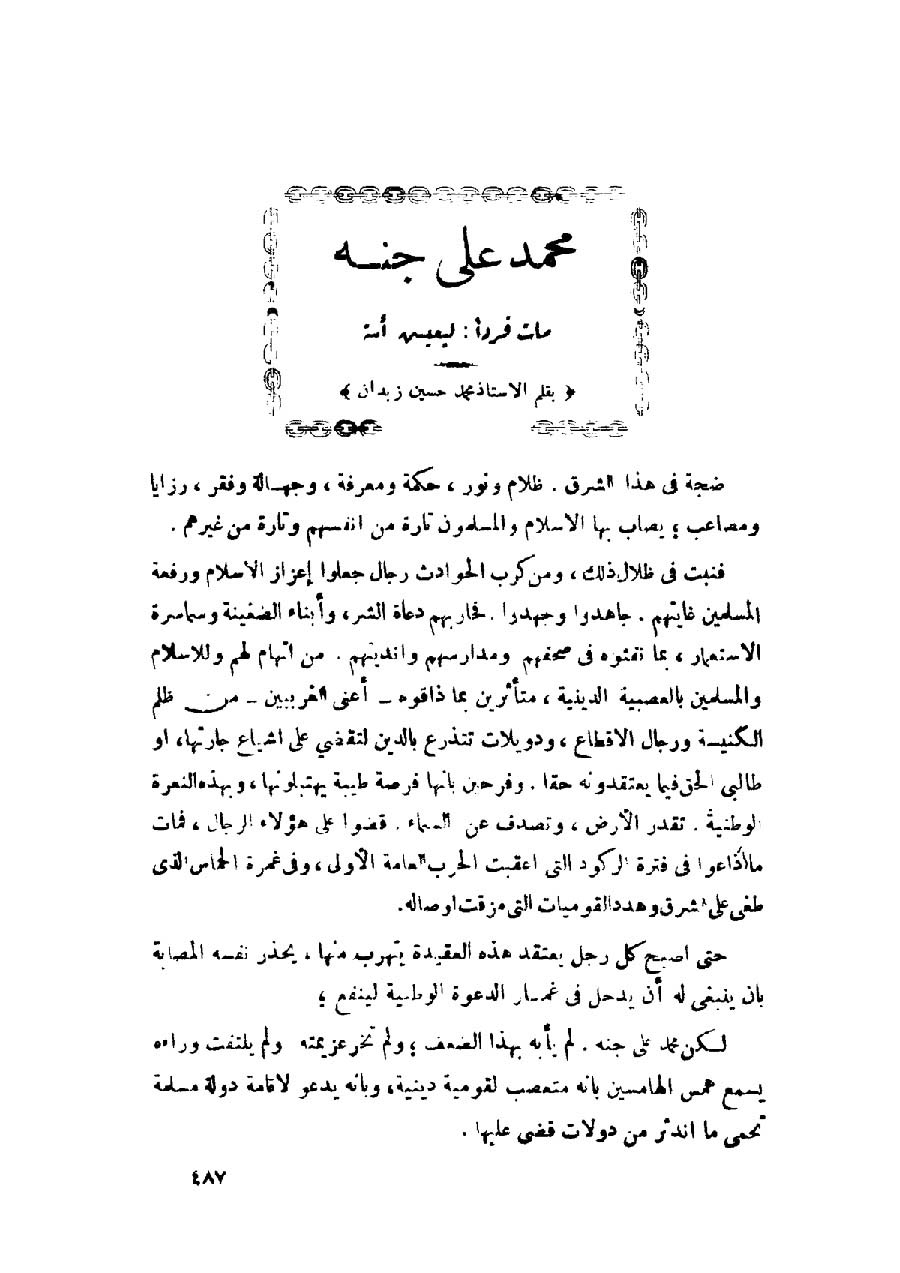 محمد على جنـه
مات فرداً : ليعيش أمة
﴿ بقلم الاستاذ محمد حسين زيدان ﴾
ضجة فى هذا الشرق . ظلام ونور ، حكمة ومعرفة ، وجهـالة وفقر ، رزايا
ومصاعب ؛ يصاب بها الاسلام والمسلمون تارة من انفسهم وتارة من غيرهم .
فنبت فى ظلال ذلك ، ومن كرب الحوادث رجال جعلوا إعزاز الاسلام ورفعة
المسلمين غايتهم . جاهدوا وجهدوا . فحاربهم دعاة الشر ، وأبناء الضغينة وسماسرة
الاستعمار ، بما نفثوه فى صحفهم ومدارسهم وانديتهم . من اتهام لهم وللاسلام
والمسلمين بالعصبية الدينية ، متأثرين بما ذاقوه ـ أعنى الغربيين ـ من ظلم
الكنيسة ورجال الاقطاع ، ودويلات تتذرع بالدين لتقضي على اشياع جارتها ، او
طالبي الحق فيما يعتقدونه حقا . وفرحين بانها فرصة طيبة يهتبلونها ، وبهذه النعرة
الوطنية . تقدر الأرض ، وتصدف عن السماء . قضوا على هؤلاء الرجال ، فمات
ما أذاعوا فى فترة الركود التى اعقبت الحرب العامة الأولى ، وفى غمرة الحماس الذى
طغى على الشرق وهدد القوميات التى مزقت اوصاله .
حتى اصبح كل رجل يعتقد هذه العقيدة يتهرب منها ، يحذر نفسه المصابة
بان ينبغى له أن يدخل فى غمـار الدعوة الوطنية لينفع ؛
لـكن محمد على جنه . لم يأبه بهذا الضعف ؛ ولم تخر عزيمته ولم يلتفت وراءه
يسمع همس الهامسين بانه متعصب لقومية دينية ، وبانه يدعو لاقامة دولة مسلمة
تحمى ما اندثر من دولات قضى عليها .
٤٨٧